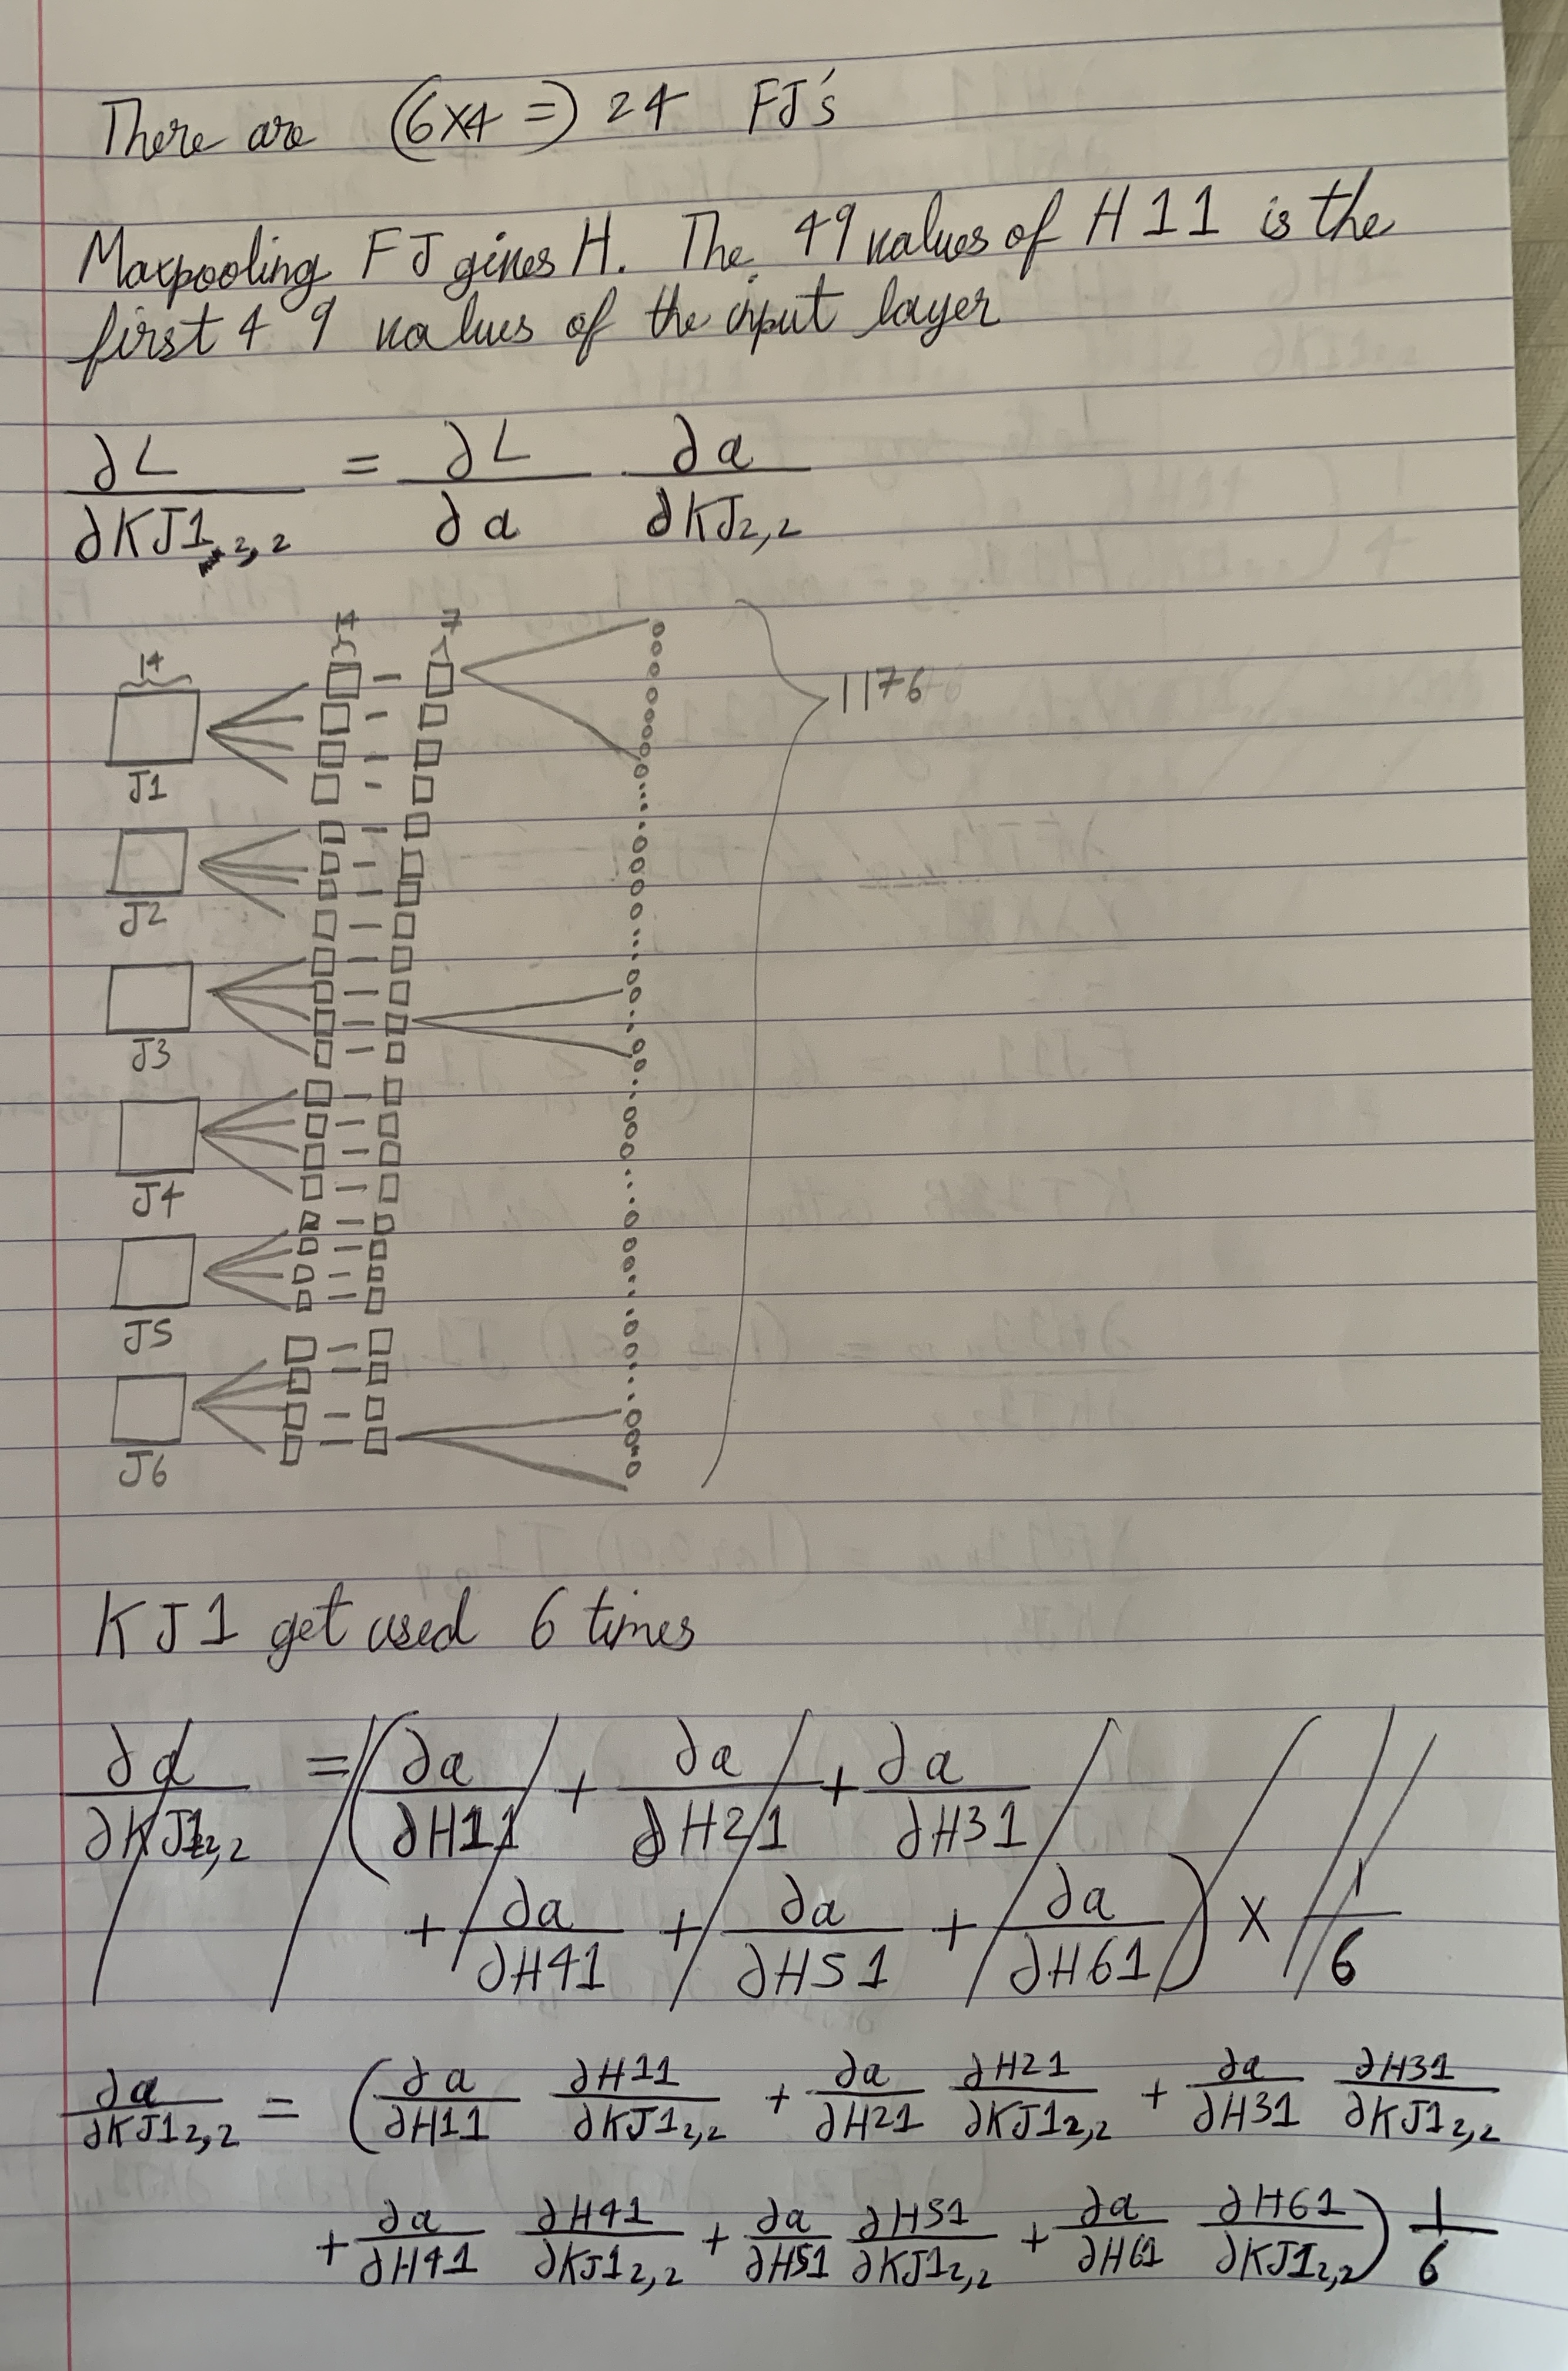 There are (6×4 =) 24 FJ's
Maxpooling FJ gives H. The 49 values of H11 is the
first 49 values of the input layer
∂L/∂KJ1₂,₂ = ∂L/∂a ∂a/∂KJ₂,₂
14 14 7
1176
J1
J2
J3
J4
J5
J6
KJ1 get used 6 times
∂a/∂KJ1₂,₂ = (∂a/∂H11 + ∂a/∂H21 + ∂a/∂H31
+ ∂a/∂H41 + ∂a/∂H51 + ∂a/∂H61) × 1/6
∂a/∂KJ1₂,₂ = (∂a/∂H11 ∂H11/∂KJ1₂,₂ + ∂a/∂H21 ∂H21/∂KJ1₂,₂ + ∂a/∂H31 ∂H31/∂KJ1₂,₂
+ ∂a/∂H41 ∂H41/∂KJ1₂,₂ + ∂a/∂H51 ∂H51/∂KJ1₂,₂ + ∂a/∂H61 ∂H61/∂KJ1₂,₂) 1/6